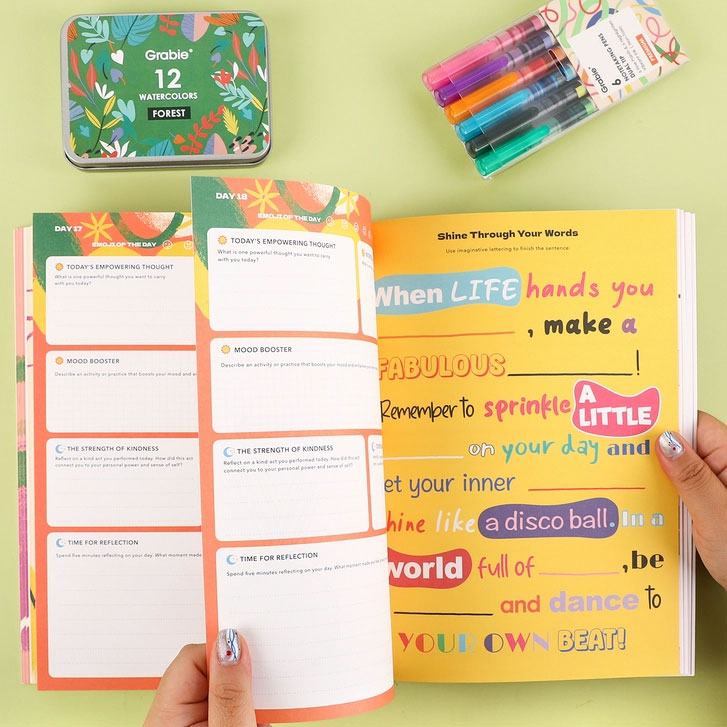 Grabie
12
WATERCOLORS
FOREST
Grabie
NOTETAKING PENS
DUAL TIP
6
DAY 17
EMOJI OF THE DAY
TODAY'S EMPOWERING THOUGHT
What is one powerful thought you want to carry
with you today?
MOOD BOOSTER
Describe an activity or practice that boosts your mood and
THE STRENGTH OF KINDNESS
Reflect on a kind act you performed today. How did this act
connect you to your personal power and sense of self?
TIME FOR REFLECTION
Spend five minutes reflecting on your day. What moment made
DAY 18
EMOJI OF THE DAY
TODAY'S EMPOWERING THOUGHT
What is one powerful thought you want to carry
with you today?
MOOD BOOSTER
Describe an activity or practice that boosts your mood and
THE STRENGTH OF KINDNESS
Reflect on a kind act you performed today. How did this act
connect you to your personal power and sense of self?
TIME FOR REFLECTION
Spend five minutes reflecting on your day. What moment made
Shine Through Your Words
Use imaginative lettering to finish the sentence:
When LIFE hands you
, make a
FABULOUS !
Remember to sprinkle A LITTLE
on your day and
et your inner
hine like a disco ball. In a
world full of , be
and dance to
YOUR OWN BEAT!